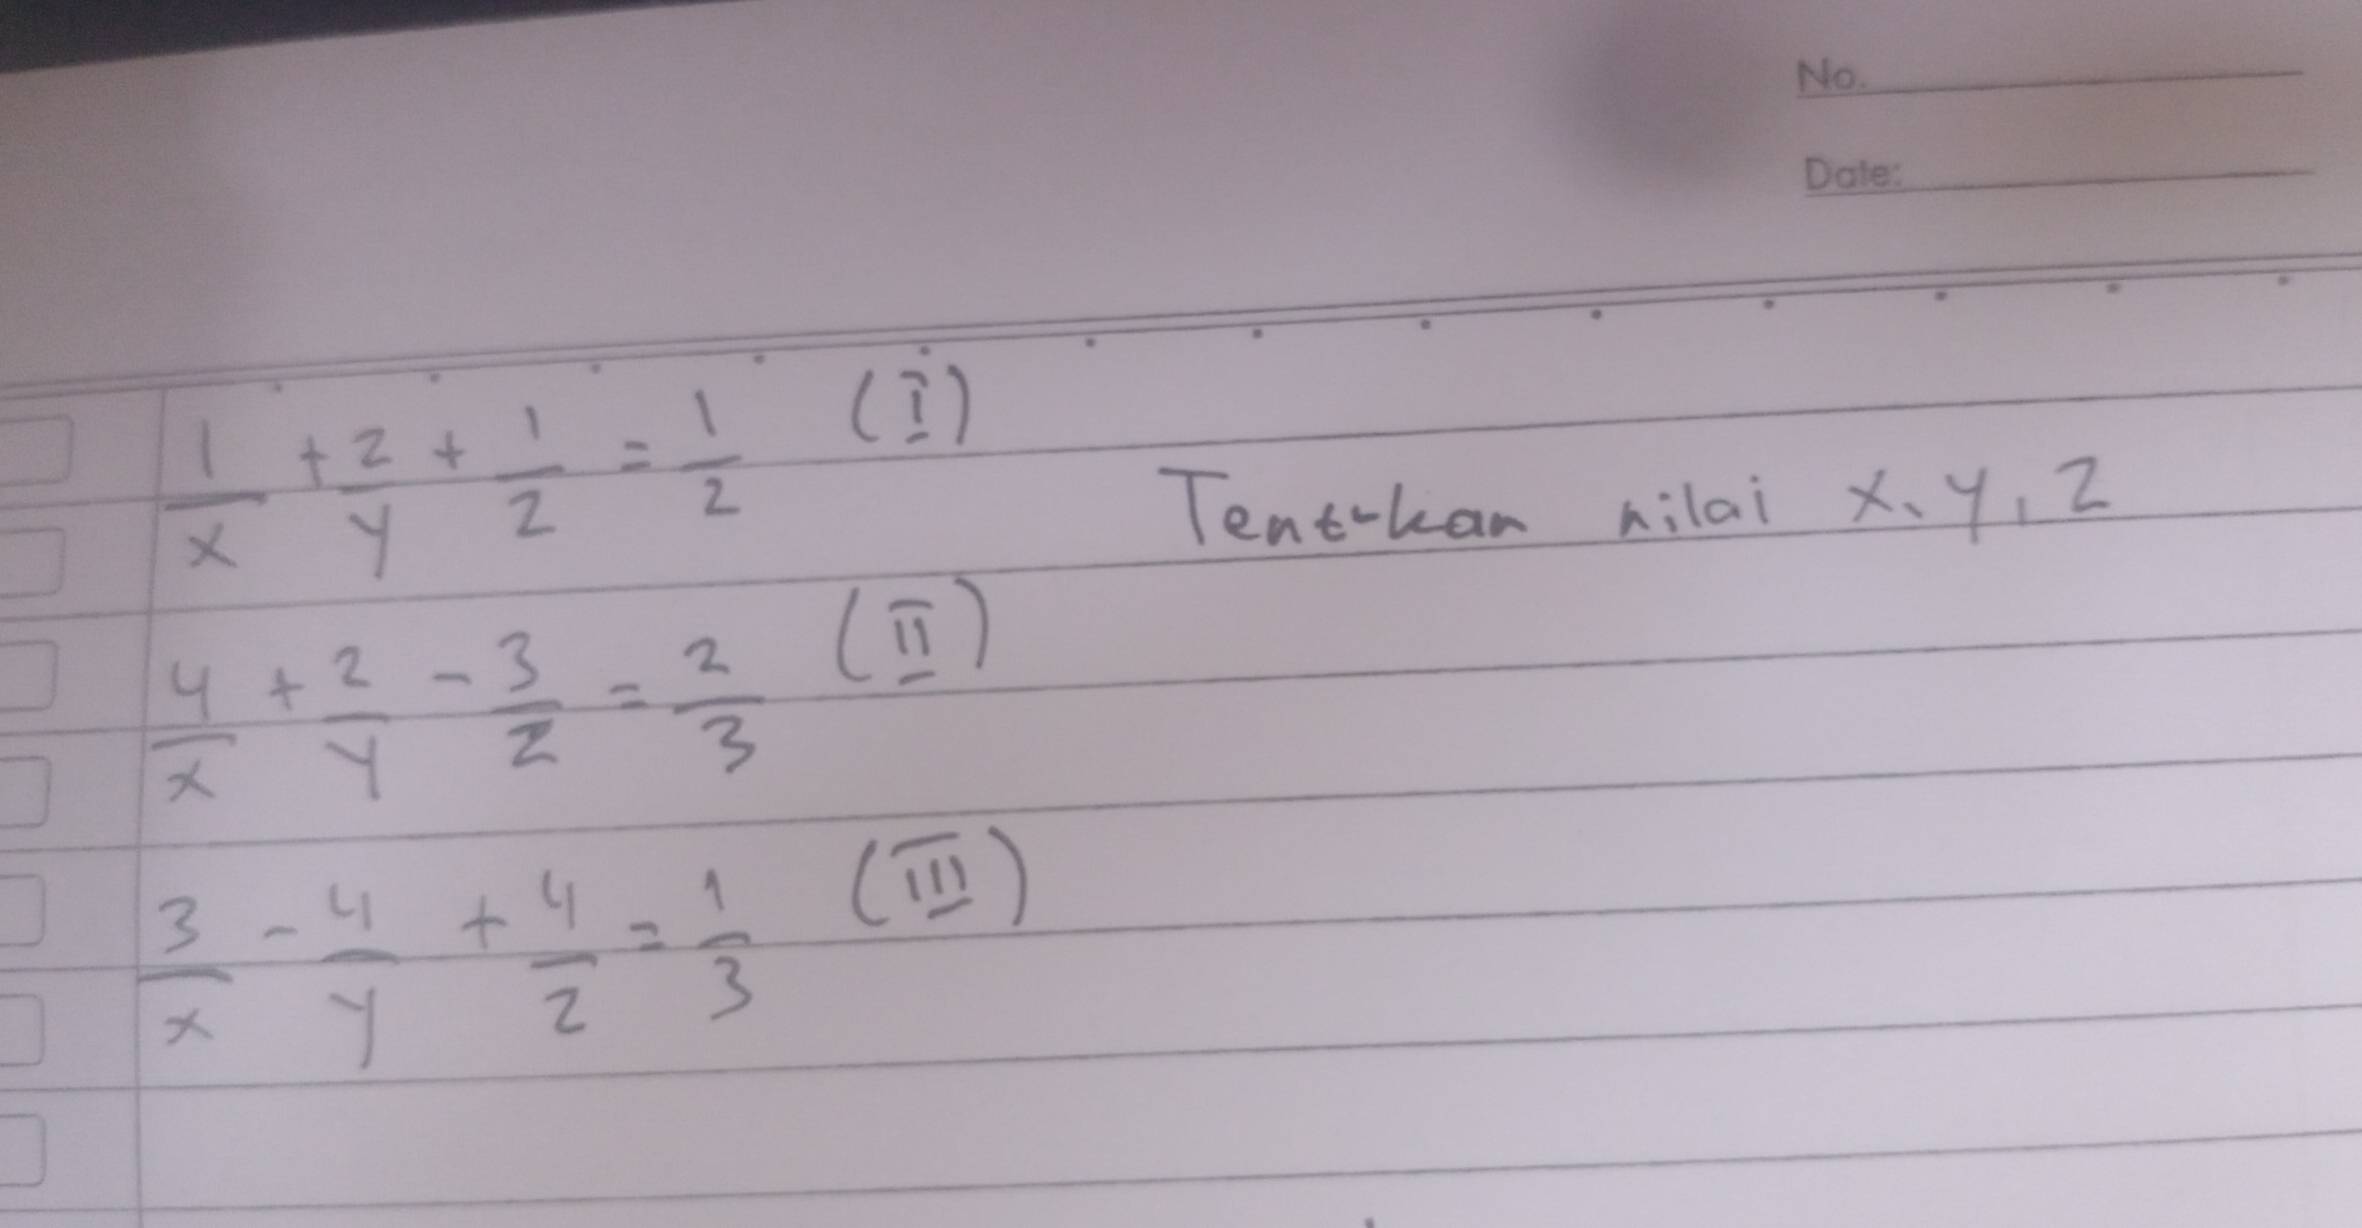 No.
Date:
1/x + 2/y + 1/z = 1/2 (I)
Tentukan nilai x, y, z
4/x + 2/y - 3/z = 2/3 (II)
3/x - 4/y + 4/z = 1/3 (III)